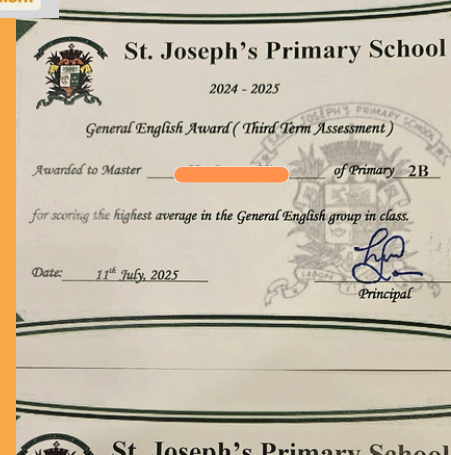 St. Joseph's Primary School
2024 - 2025
SAINT JOSEPH'S PRIMARY SCHOOL
General English Award ( Third Term Assessment )
Awarded to Master of Primary 2B
for scoring the highest average in the General English group in class.
LAGOS
Date: 11th July, 2025
Principal
St. Joseph's Primary School